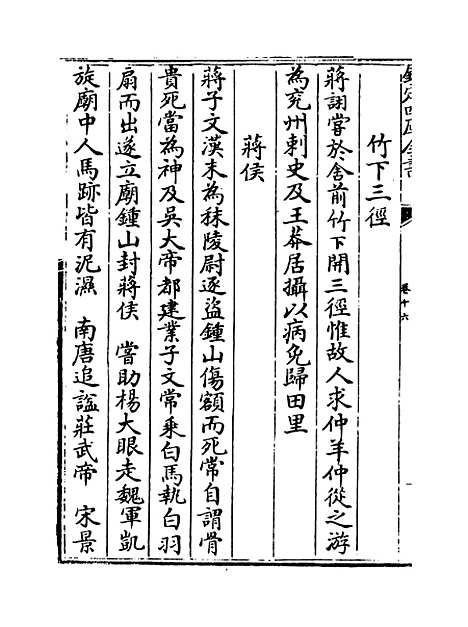 欽定四庫全書
卷十六
竹下三徑
蔣詡嘗於舍前竹下開三徑惟故人求仲羊仲從之游
為兖州刺史及王莽居攝以病免歸田里
蔣侯
蔣子文漢末為秣陵尉逐盜鍾山傷額而死常自謂骨
貴死當為神及吳大帝都建業子文常乘白馬執白羽
扇而出遂立廟鍾山封蔣侯　嘗助楊大眼走魏軍凱
旋廟中人馬跡皆有泥濕　南唐追謚莊武帝　宋景